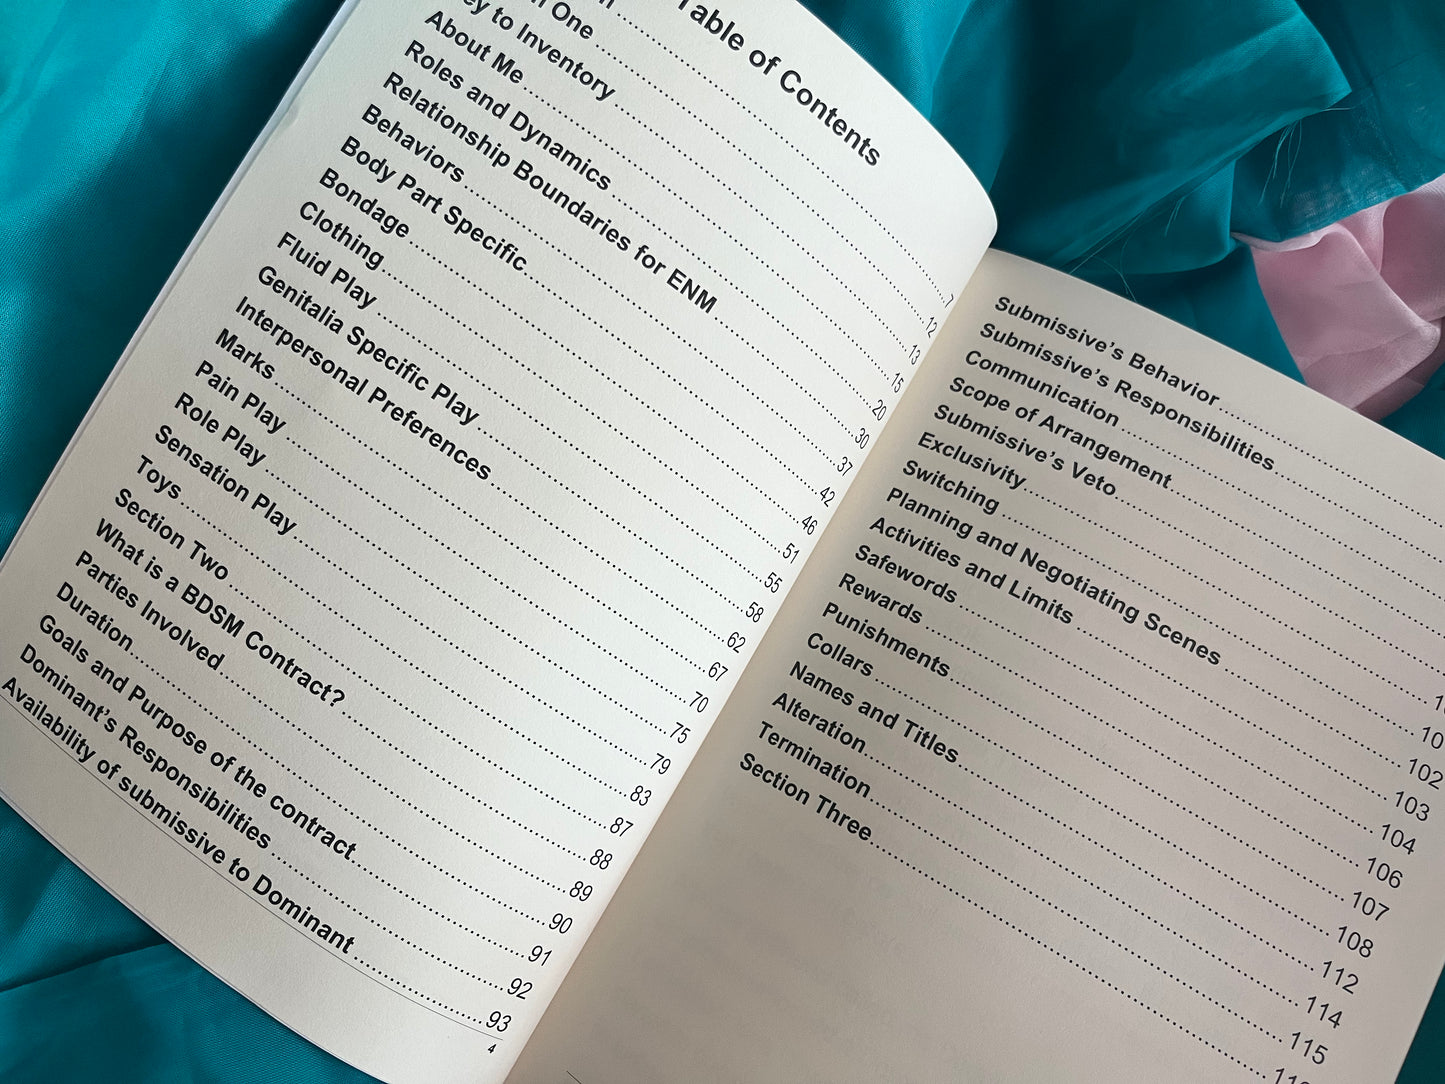 Table of Contents
7
One 12
to Inventory 13
About Me 15
Roles and Dynamics 20
Relationship Boundaries for ENM 30
Behaviors 37
Body Part Specific 42
Bondage 46
Clothing 51
Fluid Play 55
Genitalia Specific Play 58
Interpersonal Preferences 62
Marks 67
Pain Play 70
Role Play 75
Sensation Play 79
Toys 83
Section Two 87
What is a BDSM Contract? 88
Parties Involved 89
Duration 90
Goals and Purpose of the contract 91
Dominant's Responsibilities 92
Availability of submissive to Dominant 93
4
Submissive's Behavior
Submissive's Responsibilities
Communication
Scope of Arrangement
Submissive's Veto
Exclusivity
Switching
Planning and Negotiating Scenes 102
Activities and Limits 103
Safewords 104
Rewards 106
Punishments 107
Collars 108
Names and Titles 112
Alteration 114
Termination 115
Section Three